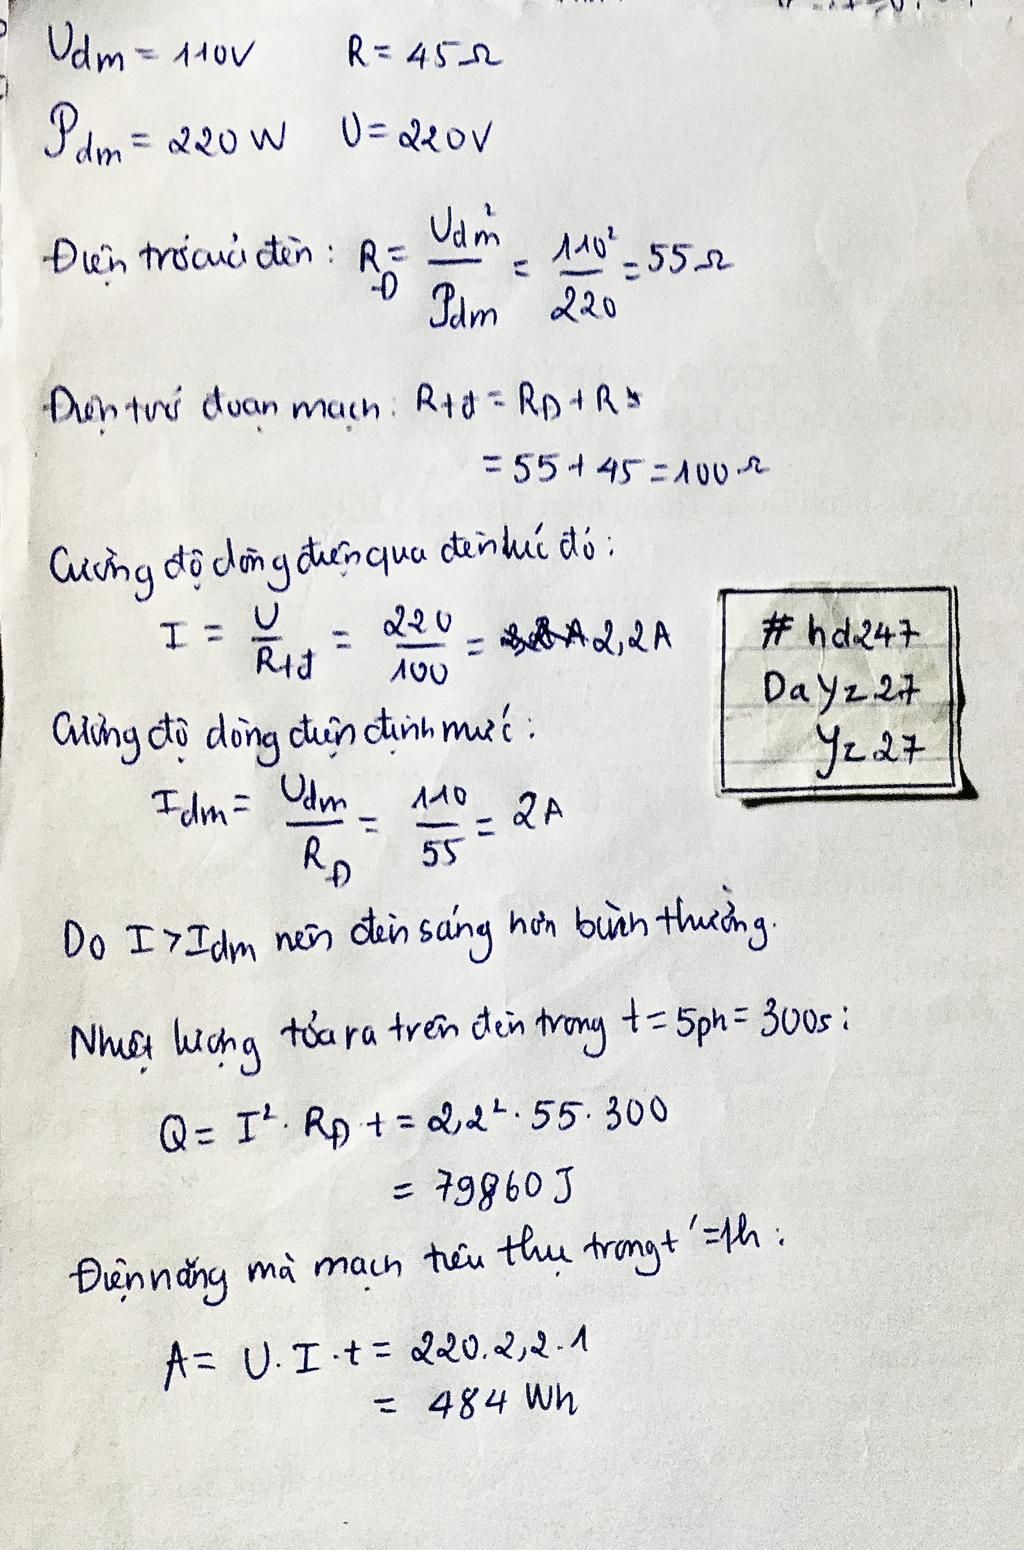 Uđm = 110V R = 45Ω
Pđm = 220W U = 220V
Điện trở của đèn: R_Đ = Uđm² / Pđm = 110² / 220 = 55Ω
Điện trở đoạn mạch: Rtđ = R_Đ + R
= 55 + 45 = 100Ω
Cường độ dòng điện qua đèn lúc đó:
I = U / Rtđ = 220 / 100 = 2,2A
Cường độ dòng điện định mức:
Idm = Udm / R_Đ = 110 / 55 = 2A
Do I > Idm nên đèn sáng hơn bình thường.
Nhiệt lượng tỏa ra trên đèn trong t = 5ph = 300s:
Q = I². R_Đ . t = 2,2² . 55 . 300
= 79860 J
Điện năng mà mạch tiêu thụ trong t' = 1h:
A = U. I . t = 220.2,2.1
= 484 Wh
# hd247
DaYz27
Yz27